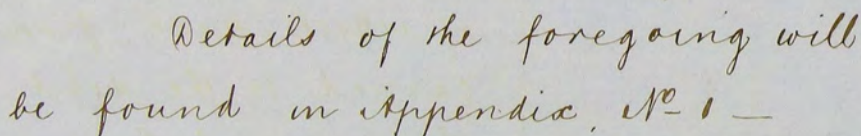 Details of the foregoing will
be found in Appendix, No 1 —